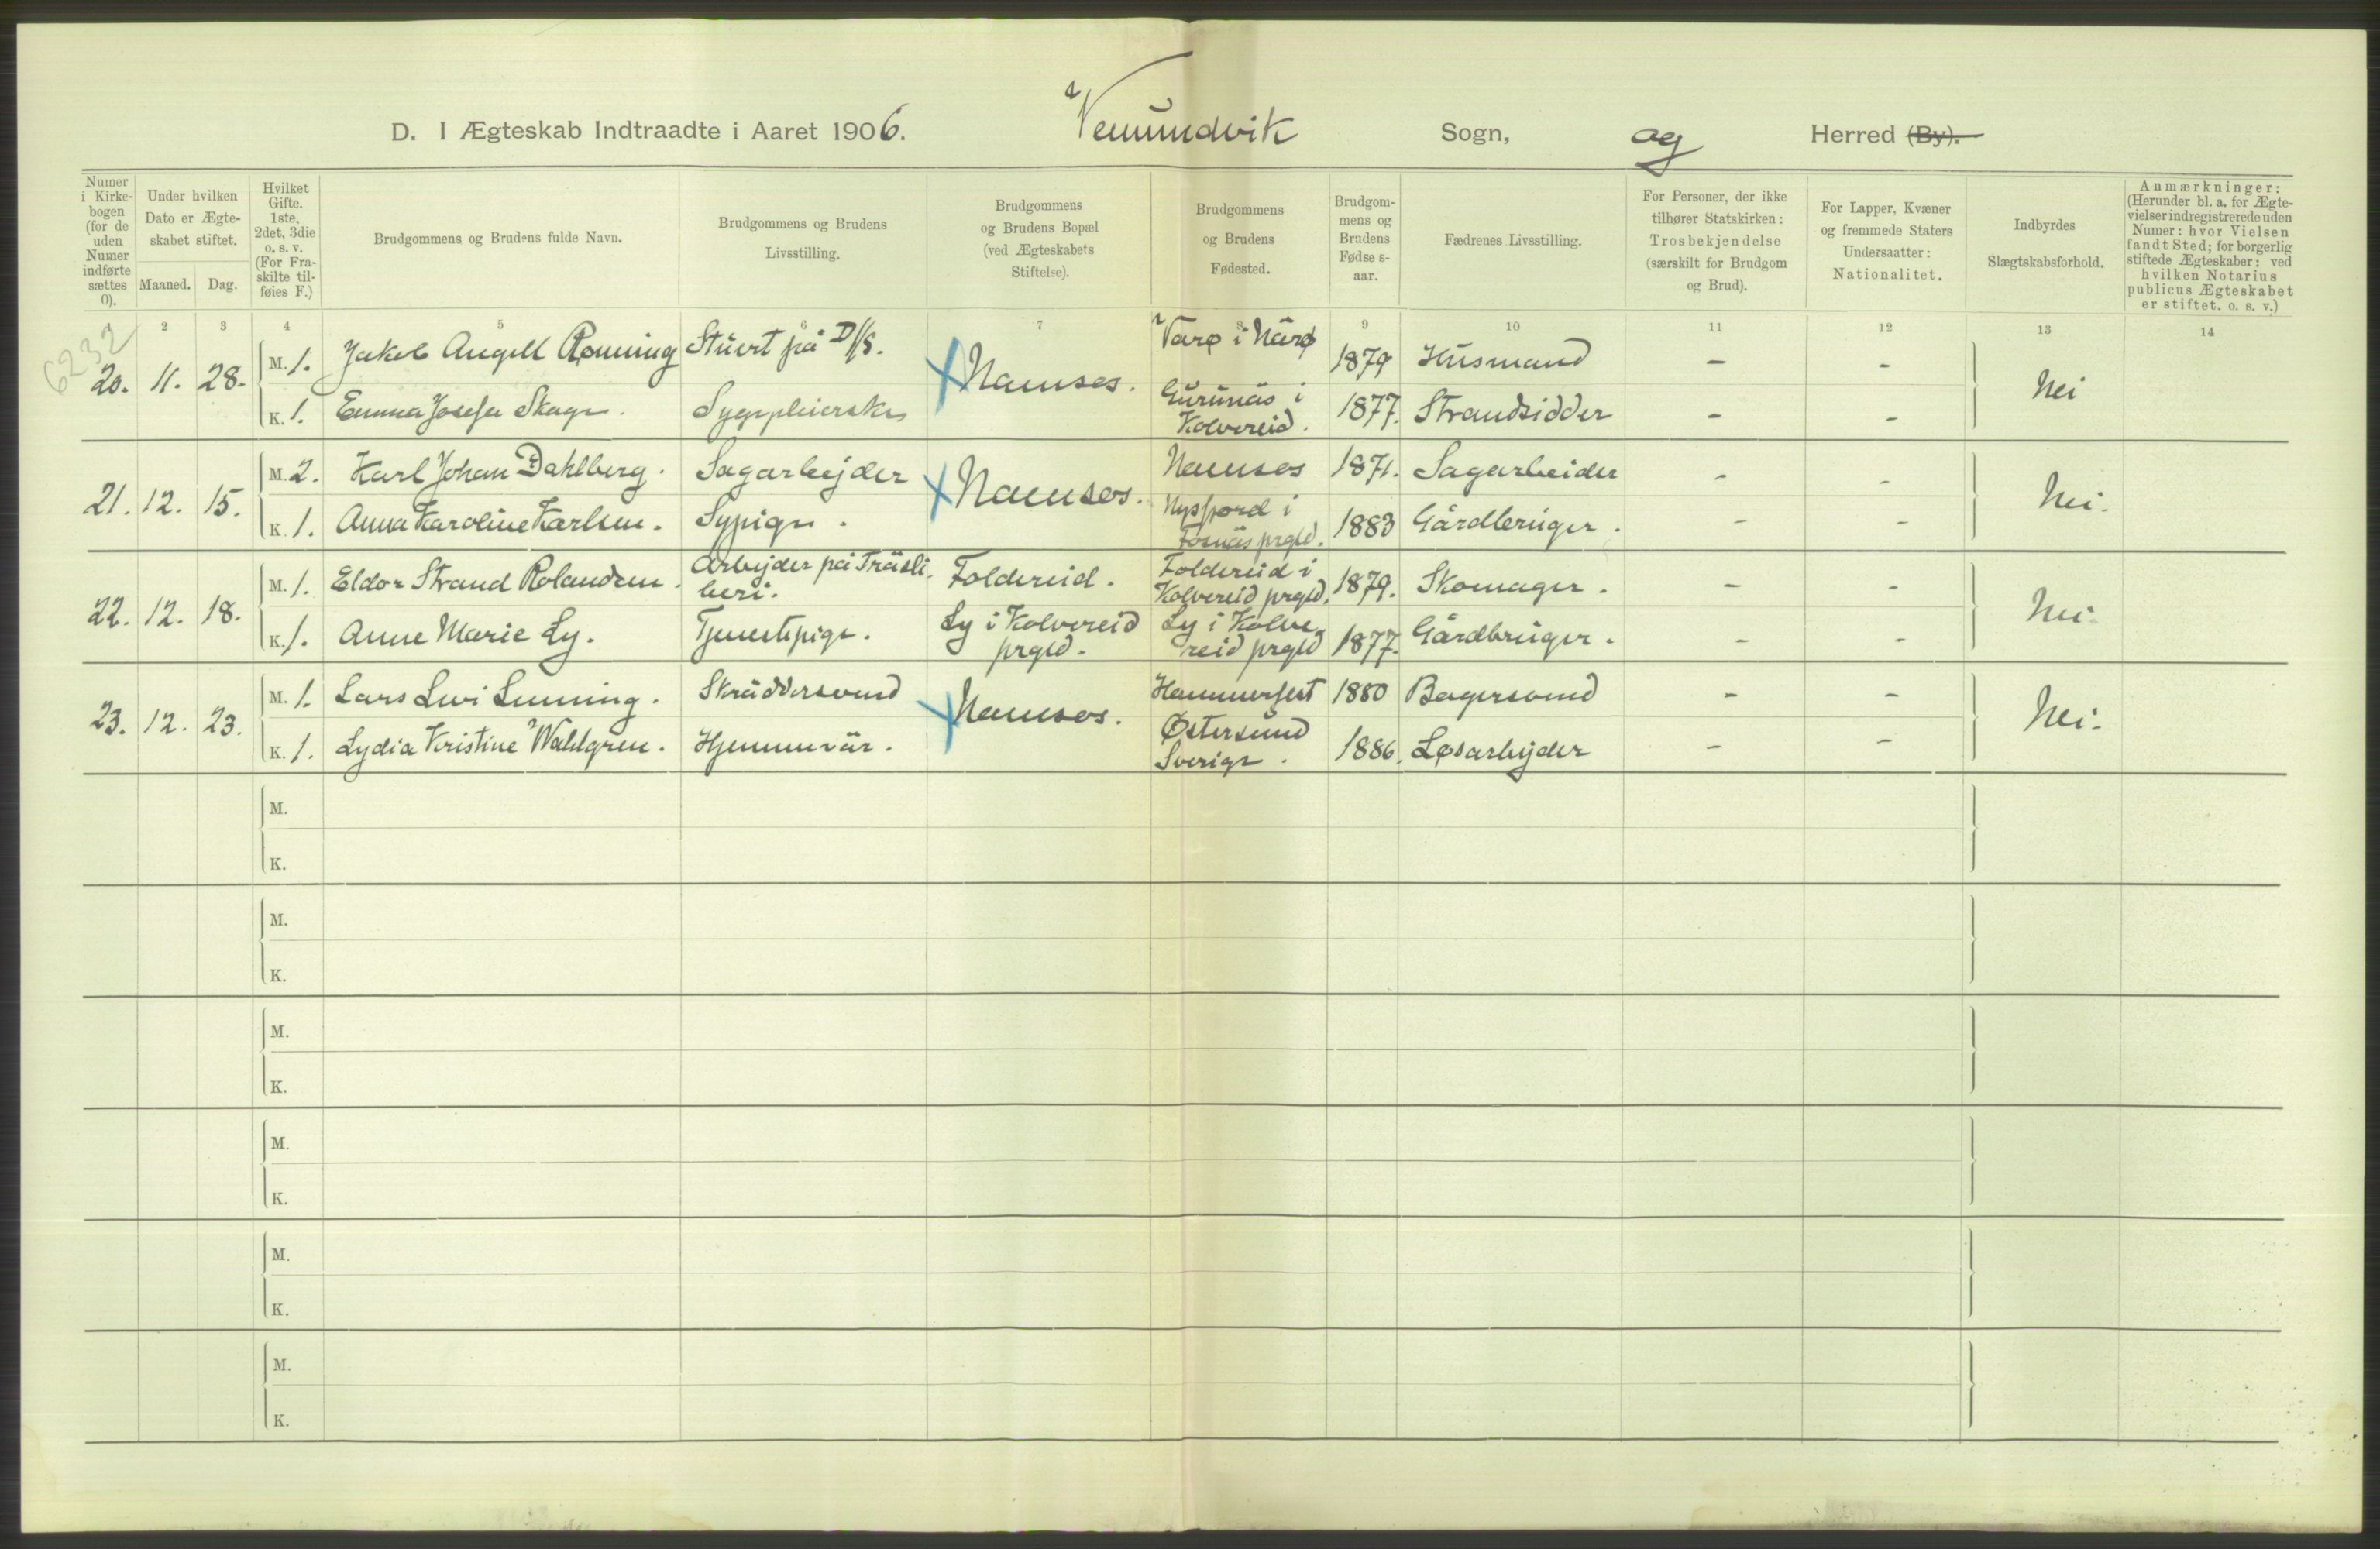 D. I Ægteskab Indtraadte i Aaret 1906. Vemundvik Sogn, og Herred (By).
Numer i Kirkebogen (for de uden Numer indførte sættes 0).
Under hvilken Dato er Ægteskabet stiftet.
Maaned. Dag.
Hvilket Gifte. 1ste, 2det, 3die o. s. v. (For Fraskilte tilføies F.)
Brudgommens og Brudens fulde Navn.
Brudgommens og Brudens Livsstilling.
Brudgommens og Brudens Bopæl (ved Ægteskabets Stiftelse).
Brudgommens og Brudens Fødested.
Brudgommens og Brudens Fødselsaar.
Fædrenes Livsstilling.
For Personer, der ikke tilhører Statskirken: Trosbekjendelse (særskilt for Brudgom og Brud).
For Lapper, Kvæner og fremmede Staters Undersaatter: Nationalitet.
Indbyrdes Slægtskabsforhold.
Anmærkninger: (Herunder bl. a. for Ægtevielser indregistrerede uden Numer: hvor Vielsen fandt Sted; for borgerlig stiftede Ægteskaber: ved hvilken Notarius publicus Ægteskabet er stiftet. o. s. v.)
1 2 3 4 5 6 7 8 9 10 11 12 13 14
6232
20. 11. 28. M. 1. Jakob Angell Rønning Stuert på D/S. Namsos. Varø i Nærø 1879 Husmand - - Nei
K. 1. Emma Josefa Skage. Sygepleierske i Kolvereid. 1877. Strandsidder - -
21. 12. 15. M. 2. Karl Johan Dahlberg. Sagarbejder Namsos. Namsos 1871. Sagarbeider - - Nei.
K. 1. Anna Karoline Karlsen. Sypige. i Fosnäs prgld. 1883 Gårdbruger. - -
22. 12. 18. M. 1. Eldor Strand Rolandsen. Arbejder på Träsliberi. Foldereid. Foldereid i Kolvereid prgld. 1879. Skomager. - - Nei.
K. 1. Anne Marie Ly. Tjenestepige. Ly i Kolvereid prgld. Ly i Kolvereid prgld 1877. Gårdbruger. - -
23. 12. 23. M. 1. Lars Levi Lunning. Skräddersvend Namsos. Hammerfest 1880 Bagersvend - - Nei.
K. 1. Lydia Kristine Wahlgren. Hjemmevär. Østersund Sverige. 1886. Løsarbejder - -
M.
K.
M.
K.
M.
K.
M.
K.
M.
K.
M.
K.